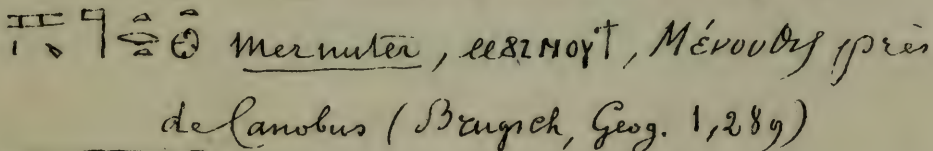 Mernuter, Μένουθις près
de Canobus (Brugsch, Geog. 1,289)